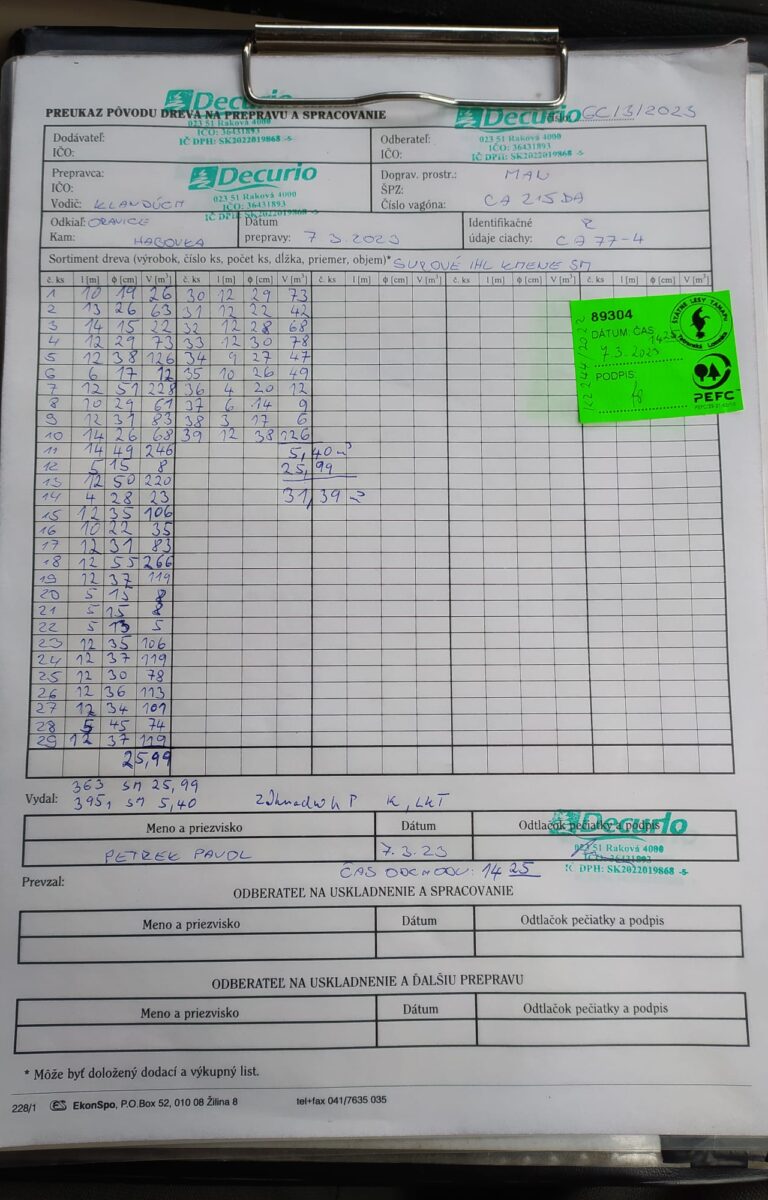 Decurio
023 51 Raková 4000
IČO: 36431893
IČ DPH: SK2022019868 -5-
PREUKAZ PÔVODU DREVA NA PREPRAVU A SPRACOVANIE
Decurio
GC/3/2023
023 51 Raková 4000
IČO: 36431893
IČ DPH: SK2022019868 -5-
Dodávateľ:
IČO:
Odberateľ:
IČO:
Prepravca:
IČO:
Vodič: KLANDÚCH
Decurio
023 51 Raková 4000
IČO: 36431893
IČ DPH: SK2022019868 -5-
Doprav. prostr.: MAN
ŠPZ:
Číslo vagóna: CA 215DA
Odkiaľ: ORAVICE
Kam: HABOVKA
Dátum
prepravy: 7 3. 2023
Identifikačné
údaje ciachy: CA 77-4
Sortiment dreva (výrobok, číslo ks, počet ks, dĺžka, priemer, objem)* SUROVÉ IHL KMENE SM
č. ks l [m] ϕ [cm] V [m³] č. ks l [m] ϕ [cm] V [m³] č. ks l [m] ϕ [cm] V [m³] č. ks l [m] ϕ [cm] V [m³] č. ks l [m] ϕ [cm] V [m³]
1 10 19 26 30 12 29 73
2 13 26 63 31 12 22 42
3 14 15 22 32 12 28 68
4 12 29 73 33 12 30 78
5 12 38 126 34 9 27 47
6 6 17 12 35 10 26 49
7 12 51 228 36 4 20 12
8 10 29 61 37 6 14 9
9 12 31 83 38 3 17 6
10 14 26 68 39 12 38 126
11 14 49 246 5,40 m³
12 5 15 8 25,99
13 12 50 220
14 4 28 23 31,39 m³
15 12 35 106
16 10 22 35
17 12 31 83
18 12 55 266
19 12 37 119
20 5 15 8
21 5 15 8
22 5 13 5
23 12 35 106
24 12 37 119
25 12 30 78
26 12 36 113
27 12 34 101
28 5 45 74
29 12 37 119
25,99
89304
DÁTUM: ČAS
7.3.2023 1425
PODPIS:
ŠTÁTNE LESY TANAPU
Tatranská Lomnica
PEFC
Vydal: 363 SM 25,99
395, SM 5,40
P K, LKT
Meno a priezvisko Dátum Odtlačok pečiatky a podpis
PETREK PAVOL 7.3.23
Decurio
023 51 Raková 4000
IČ DPH: SK2022019868 -5-
ČAS ODCHODU: 14 25
Prevzal:
ODBERATEĽ NA USKLADNENIE A SPRACOVANIE
Meno a priezvisko Dátum Odtlačok pečiatky a podpis
ODBERATEĽ NA USKLADNENIE A ĎALŠIU PREPRAVU
Meno a priezvisko Dátum Odtlačok pečiatky a podpis
* Môže byť doložený dodací a výkupný list.
228/1 EkonSpo, P.O.Box 52, 010 08 Žilina 8 tel+fax 041/7635 035